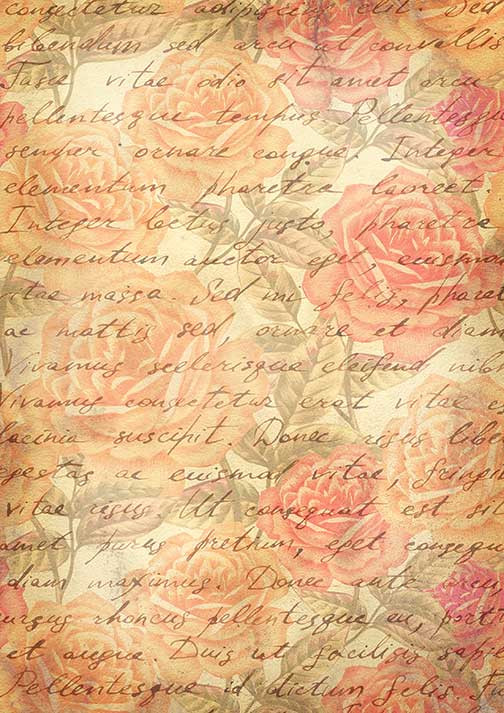 consectetur adipiscing elit. Sed
bibendum sed arcu ut convallis
Fusce vitae odio sit amet arcu
pellentesque tempus Pellentesque
semper ornare congue. Integer
elementum pharetra laoreet.
Integer lectus justo, pharetra
elementum auctor eget, euismod
vitae massa. Sed mi felis, phare
ac mattis sed, ornare et diam
Vivamus scelerisque eleifend nibh
Vivamus consectetur erat vitae
lacinia suscipit. Donec risus libe
egestas ac euismod vitae, fringil
vitae risus. Ut consequat est si
amet purus pretium, eget conseque
diam maximus. Donec ante arcu
cursus rhoncus pellentesque eu, port
et augue. Duis ut facilisis sapie
Pellentesque id dictum felis. Fu